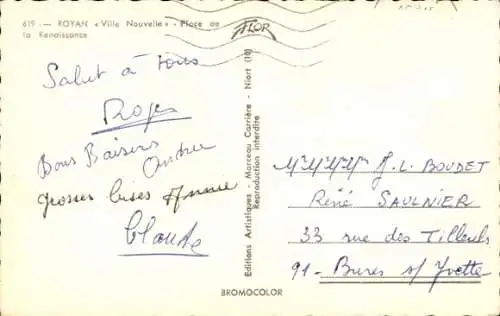 619. — ROYAN « Ville Nouvelle » - Place de
la Renaissance
FLOR
Salut à tous
Roger
Bons Baisers
Andrée
grosses bises Annie
Claude
Editions Artistiques - Marceau Carrière - Niort (10)
Reproduction interdite
J. L. BOUDET
René SAULNIER
33 rue des Tilleuls
91 - Bures s/ Yvette
BROMOCOLOR